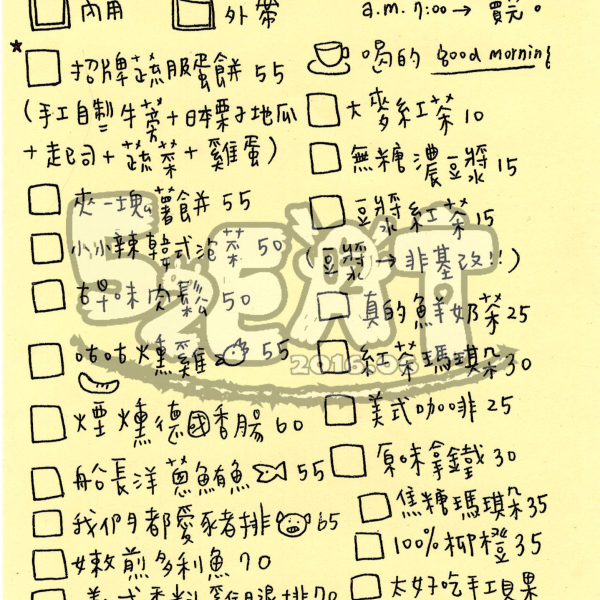 內用
外帶
a.m. 7:00 → 賣完。
★ 招牌蔬服蛋餅 55
(手工自製牛蒡+日本栗子地瓜
+起司+蔬菜+雞蛋)
夾一塊薯餅 55
小小辣韓式泡菜 50
古早味肉鬆 50
咕咕燻雞 55
煙燻德國香腸 60
船長洋蔥鮪魚 55
我們都愛豬排 65
嫩煎多利魚 70
美式香料雞腿排 70
喝的 good morning
大麥紅茶 10
無糖濃豆漿 15
豆漿紅茶 15
(豆漿→非基改!!)
真的鮮奶茶 25
紅茶瑪琪朵 30
美式咖啡 25
原味拿鐵 30
焦糖瑪琪朵 35
100%柳橙 35
太好吃手工貝果
SzEAT
2016.06